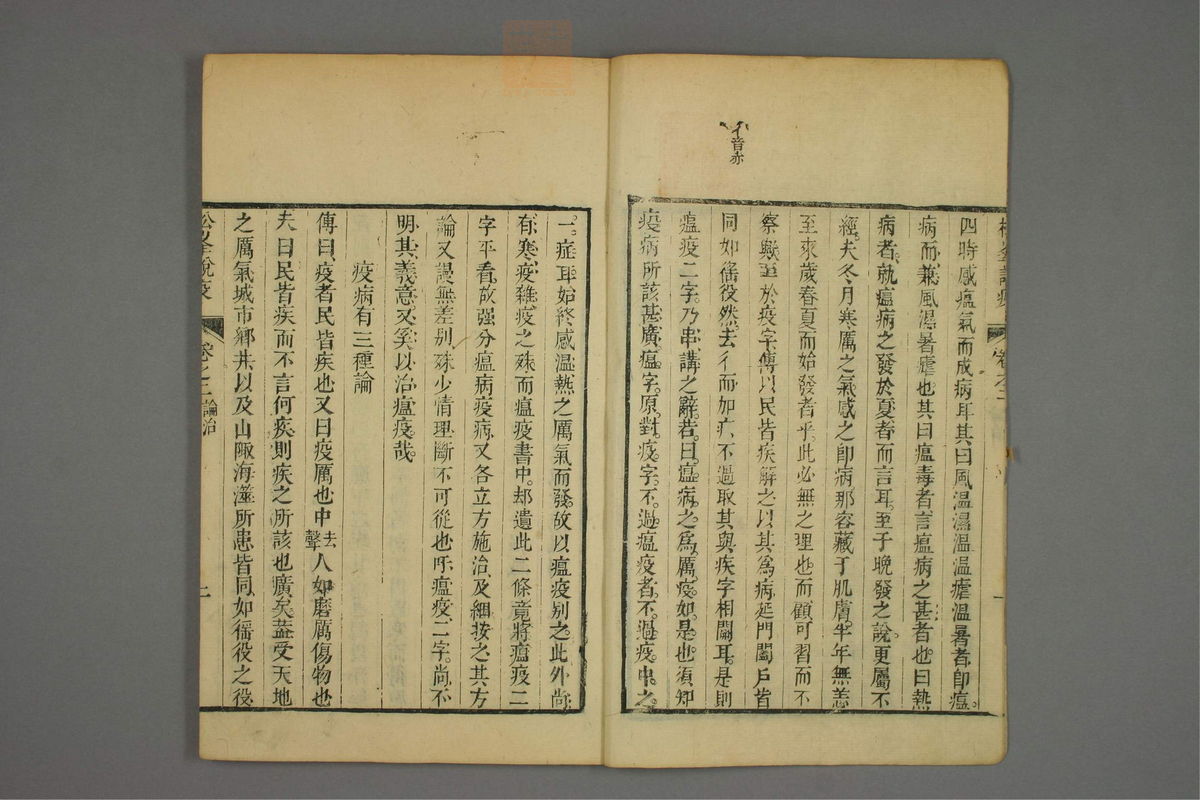 彳音亦
四時感瘟氣而成病耳其曰風温濕温温瘧温暑者卽瘟
病而兼風濕暑瘧也其曰瘟毒者言瘟病之甚者也曰熱
病者就瘟病之發於夏者而言耳至于晚發之說更屬不
經夫冬月寒厲之氣感之卽病那容藏于肌膚半年無恙
至來歲春夏而始發者乎此必無之理也而顧可習而不
察歟至於疫字傳以民皆疾解之以其爲病延門闔戶皆
同如徭役然去彳而加疒不過取其與疾字相關耳是則
瘟疫二字乃串講之辭若曰瘟病之爲厲疫如是也須知
疫病所該甚廣瘟字原對疫字不過瘟疫者不過疫中之
一症耳始終感温熱之厲氣而發故以瘟疫别之此外尚
有寒疫雜疫之殊而瘟疫書中却遺此二條竟將瘟疫二
字平看故强分瘟病疫病又各立方施治及細按之其方
論又謾無差别殊少情理斷不可從也吁瘟疫二字尚不
明其義意又奚以治瘟疫哉
疫病有三種論
傳曰疫者民皆疾也又曰疫厲也中去聲人如磨厲傷物也
夫曰民皆疾而不言何疾則疾之所該也廣矣蓋受天地
之厲氣城市鄉井以及山陬海澨所患皆同如徭役之役
松峯說疫
卷之二
論治